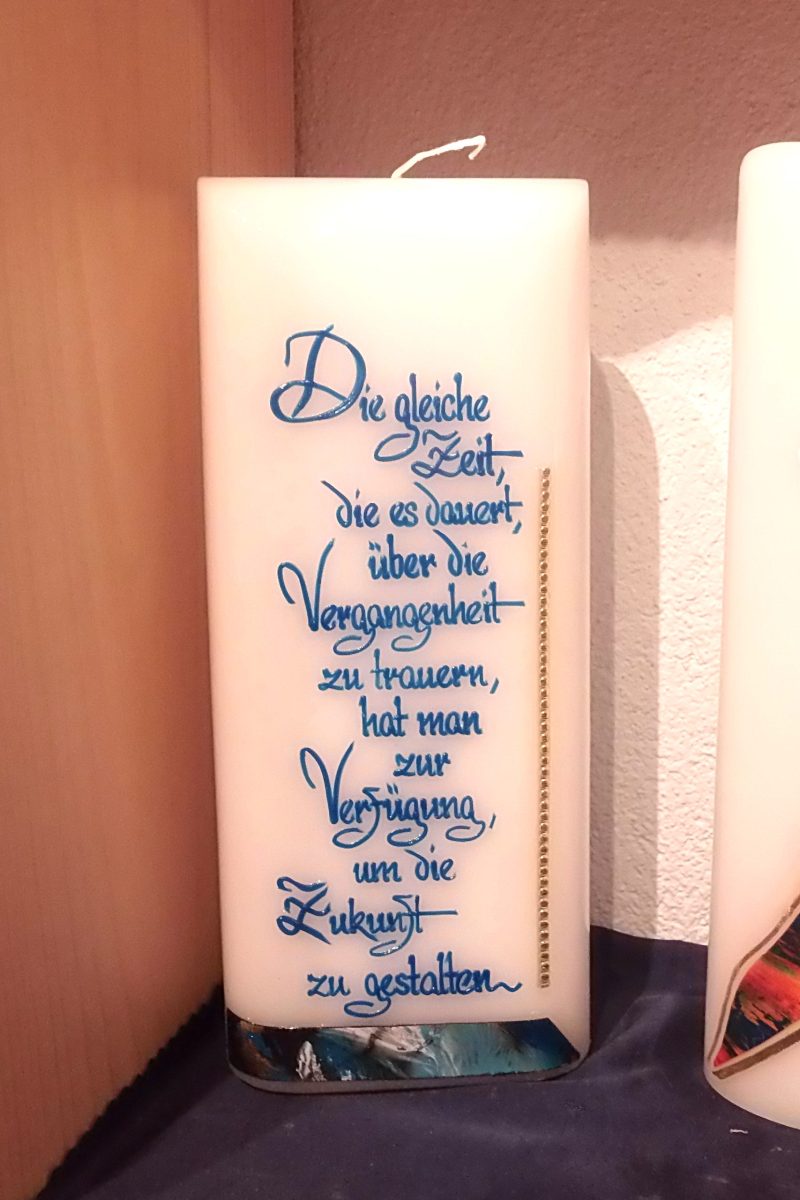 Die gleiche
Zeit,
die es dauert,
über die
Vergangenheit
zu trauern,
hat man
zur
Verfügung,
um die
Zukunft
zu gestalten